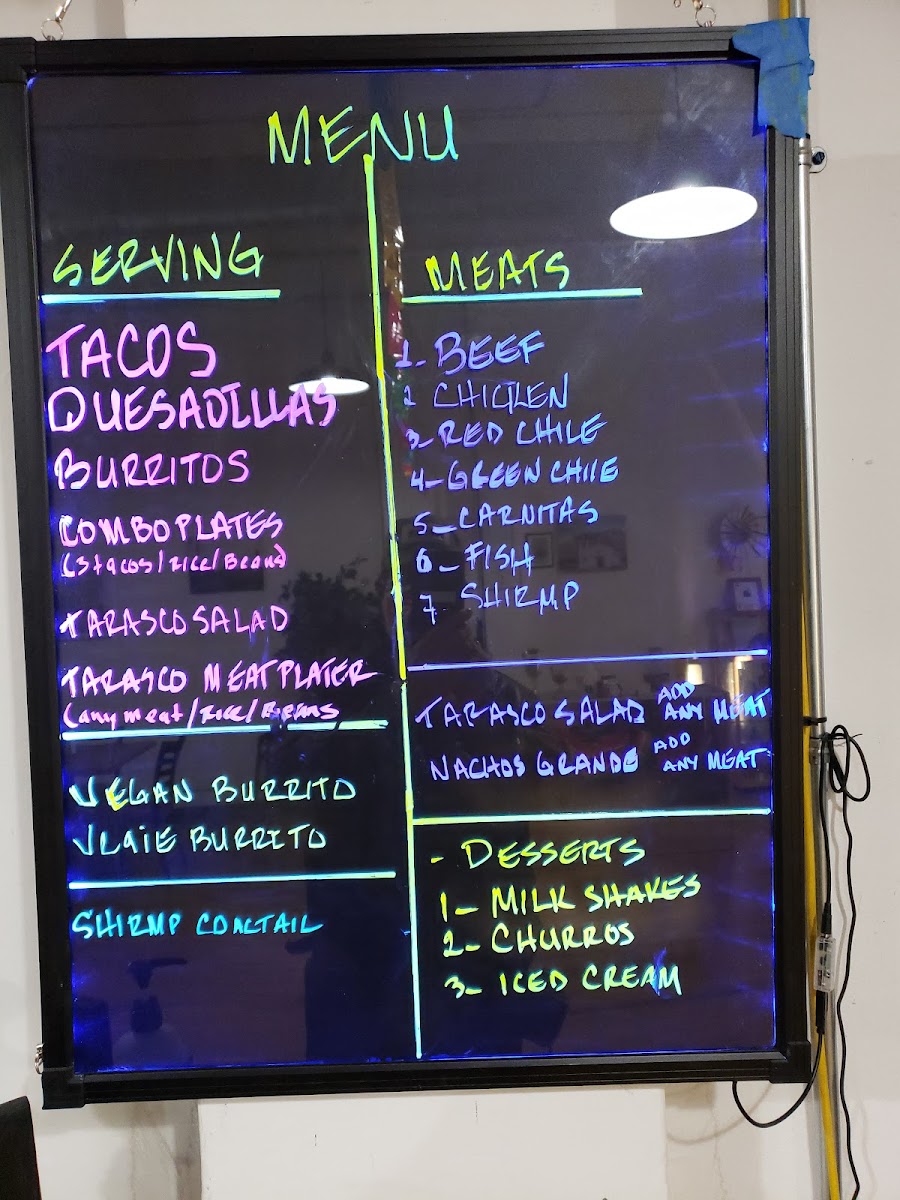 MENU
SERVING
TACOS
QUESADILLAS
BURRITOS
COMBO PLATES
(3 tacos/RICE/Beans)
TARASCO SALAD
TARASCO MEAT PLATER
(any meat/RICE/Beans
VEGAN BURRITO
VLGIE BURRITO
SHIRMP CONCTAIL
MEATS
1- BEEF
2 CHICKEN
3- RED CHILE
4- GREEN CHILE
5- CARNITAS
6- FISH
7- SHIRMP
TARASCO SALAD ADD ANY MEAT
NACHOS GRANDE ADD ANY MEAT
- DESSERTS
1- MILK SHAKES
2- CHURROS
3- ICED CREAM